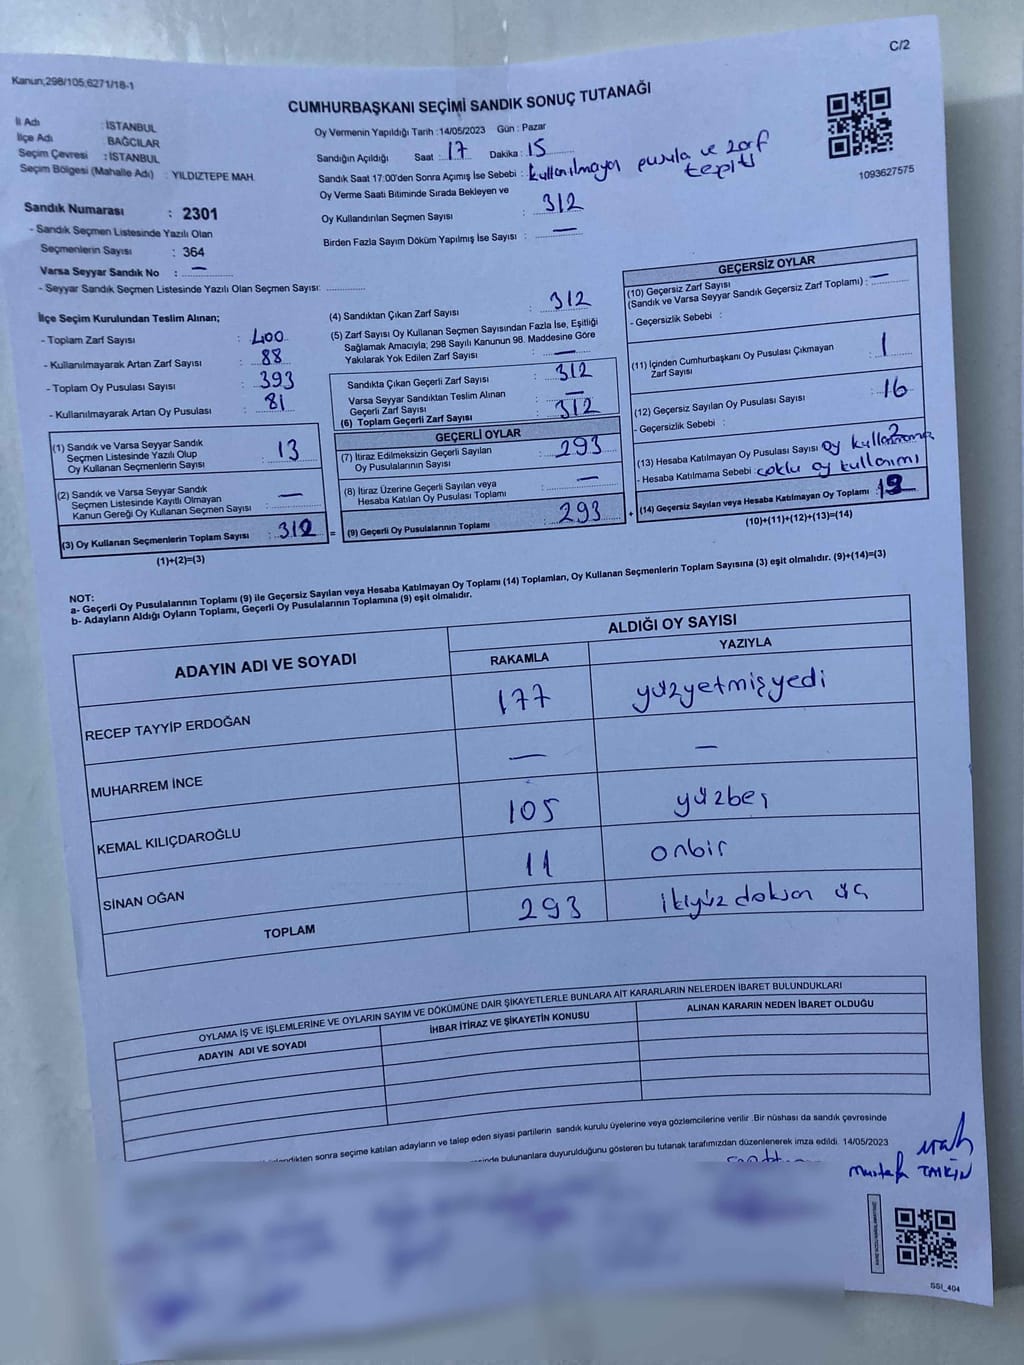 C/2
Kanun;298/105;6271/18-1
CUMHURBAŞKANI SEÇİMİ SANDIK SONUÇ TUTANAĞI
İl Adı : İSTANBUL
İlçe Adı : BAĞCILAR
Seçim Çevresi : İSTANBUL
Seçim Bölgesi (Mahalle Adı) : YILDIZTEPE MAH.
Sandık Numarası : 2301
- Sandık Seçmen Listesinde Yazılı Olan
Seçmenlerin Sayısı : 364
Varsa Seyyar Sandık No : —
- Seyyar Sandık Seçmen Listesinde Yazılı Olan Seçmen Sayısı:
Oy Vermenin Yapıldığı Tarih :14/05/2023 Gün : Pazar
Sandığın Açıldığı Saat : 17 Dakika : 15
Sandık Saat 17:00'den Sonra Açımış İse Sebebi : kullanılmayan pusula ve zarf
tespiti
Oy Verme Saati Bitiminde Sırada Bekleyen ve
Oy Kullandırılan Seçmen Sayısı : 312
Birden Fazla Sayım Döküm Yapılmış İse Sayısı : —
1093627575
İlçe Seçim Kurulundan Teslim Alınan;
- Toplam Zarf Sayısı : 400
- Kullanılmayarak Artan Zarf Sayısı : 88
- Toplam Oy Pusulası Sayısı : 393
- Kullanılmayarak Artan Oy Pusulası : 81
(1) Sandık ve Varsa Seyyar Sandık
Seçmen Listesinde Yazılı Olup
Oy Kullanan Seçmenlerin Sayısı : 13
(2) Sandık ve Varsa Seyyar Sandık
Seçmen Listesinde Kayıtlı Olmayan
Kanun Gereği Oy Kullanan Seçmen Sayısı : —
(3) Oy Kullanan Seçmenlerin Toplam Sayısı : 312 =
(1)+(2)=(3)
(4) Sandıktan Çıkan Zarf Sayısı : 312
(5) Zarf Sayısı Oy Kullanan Seçmen Sayısından Fazla İse, Eşitliği
Sağlamak Amacıyla; 298 Sayılı Kanunun 98. Maddesine Göre
Yakılarak Yok Edilen Zarf Sayısı : —
Sandıkta Çıkan Geçerli Zarf Sayısı : 312
Varsa Seyyar Sandıktan Teslim Alınan
Geçerli Zarf Sayısı : —
(6) Toplam Geçerli Zarf Sayısı : 312
GEÇERLİ OYLAR
(7) İtiraz Edilmeksizin Geçerli Sayılan
Oy Pusulalarının Sayısı : 293
(8) İtiraz Üzerine Geçerli Sayılan veya
Hesaba Katılan Oy Pusulası Toplamı : —
(9) Geçerli Oy Pusulalarının Toplamı : 293 +
GEÇERSİZ OYLAR
(10) Geçersiz Zarf Sayısı
(Sandık ve Varsa Seyyar Sandık Geçersiz Zarf Toplamı) : —
- Geçersizlik Sebebi :
(11) İçinden Cumhurbaşkanı Oy Pusulası Çıkmayan
Zarf Sayısı : 1
(12) Geçersiz Sayılan Oy Pusulası Sayısı : 16
- Geçersizlik Sebebi :
(13) Hesaba Katılmayan Oy Pusulası Sayısı : 2 oy kullanmama
- Hesaba Katılmama Sebebi : çoklu oy kullanımı
(14) Geçersiz Sayılan veya Hesaba Katılmayan Oy Toplamı : 19
(10)+(11)+(12)+(13)=(14)
NOT:
a- Geçerli Oy Pusulalarının Toplamı (9) ile Geçersiz Sayılan veya Hesaba Katılmayan Oy Toplamı (14) Toplamları, Oy Kullanan Seçmenlerin Toplam Sayısına (3) eşit olmalıdır. (9)+(14)=(3)
b- Adayların Aldığı Oyların Toplamı, Geçerli Oy Pusulalarının Toplamına (9) eşit olmalıdır.
ADAYIN ADI VE SOYADI
ALDIĞI OY SAYISI
RAKAMLA YAZIYLA
RECEP TAYYİP ERDOĞAN 177 yüzyetmişyedi
MUHARREM İNCE — —
KEMAL KILIÇDAROĞLU 105 yüzbeş
SİNAN OĞAN 11 onbir
TOPLAM 293 ikiyüz doksan üç
OYLAMA İŞ VE İŞLEMLERİNE VE OYLARIN SAYIM VE DÖKÜMÜNE DAİR ŞİKAYETLERLE BUNLARA AİT KARARLARIN NELERDEN İBARET BULUNDUKLARI
ADAYIN ADI VE SOYADI
İHBAR İTİRAZ VE ŞİKAYETİN KONUSU
ALINAN KARARIN NEDEN İBARET OLDUĞU
sonra seçime katılan adayların ve talep eden siyasi partilerin sandık kurulu üyelerine veya gözlemcilerine verilir .Bir nüshası da sandık çevresinde
bulunanlara duyurulduğunu gösteren bu tutanak tarafımızdan düzenlenerek imza edildi. 14/05/2023
SSI_404